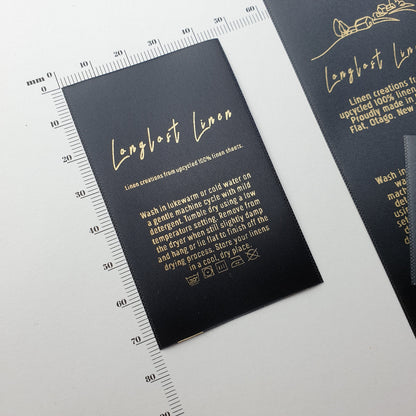 mm
0
10
20
30
40
50
60
10
20
30
40
50
60
70
80
Longlast Linen
Linen creations from upcycled 100% linen sheets.
Wash in lukewarm or cold water on
a gentle machine cycle with mild
detergent. Tumble dry using a low
temperature setting. Remove from
the dryer when still slightly damp
and hang or lie flat to finish off the
drying process. Store your linens
in a cool, dry place.
Longlast Line
Linen creations
upcycled 100% linen
Proudly made in
Flat, Otago, New
Wash in